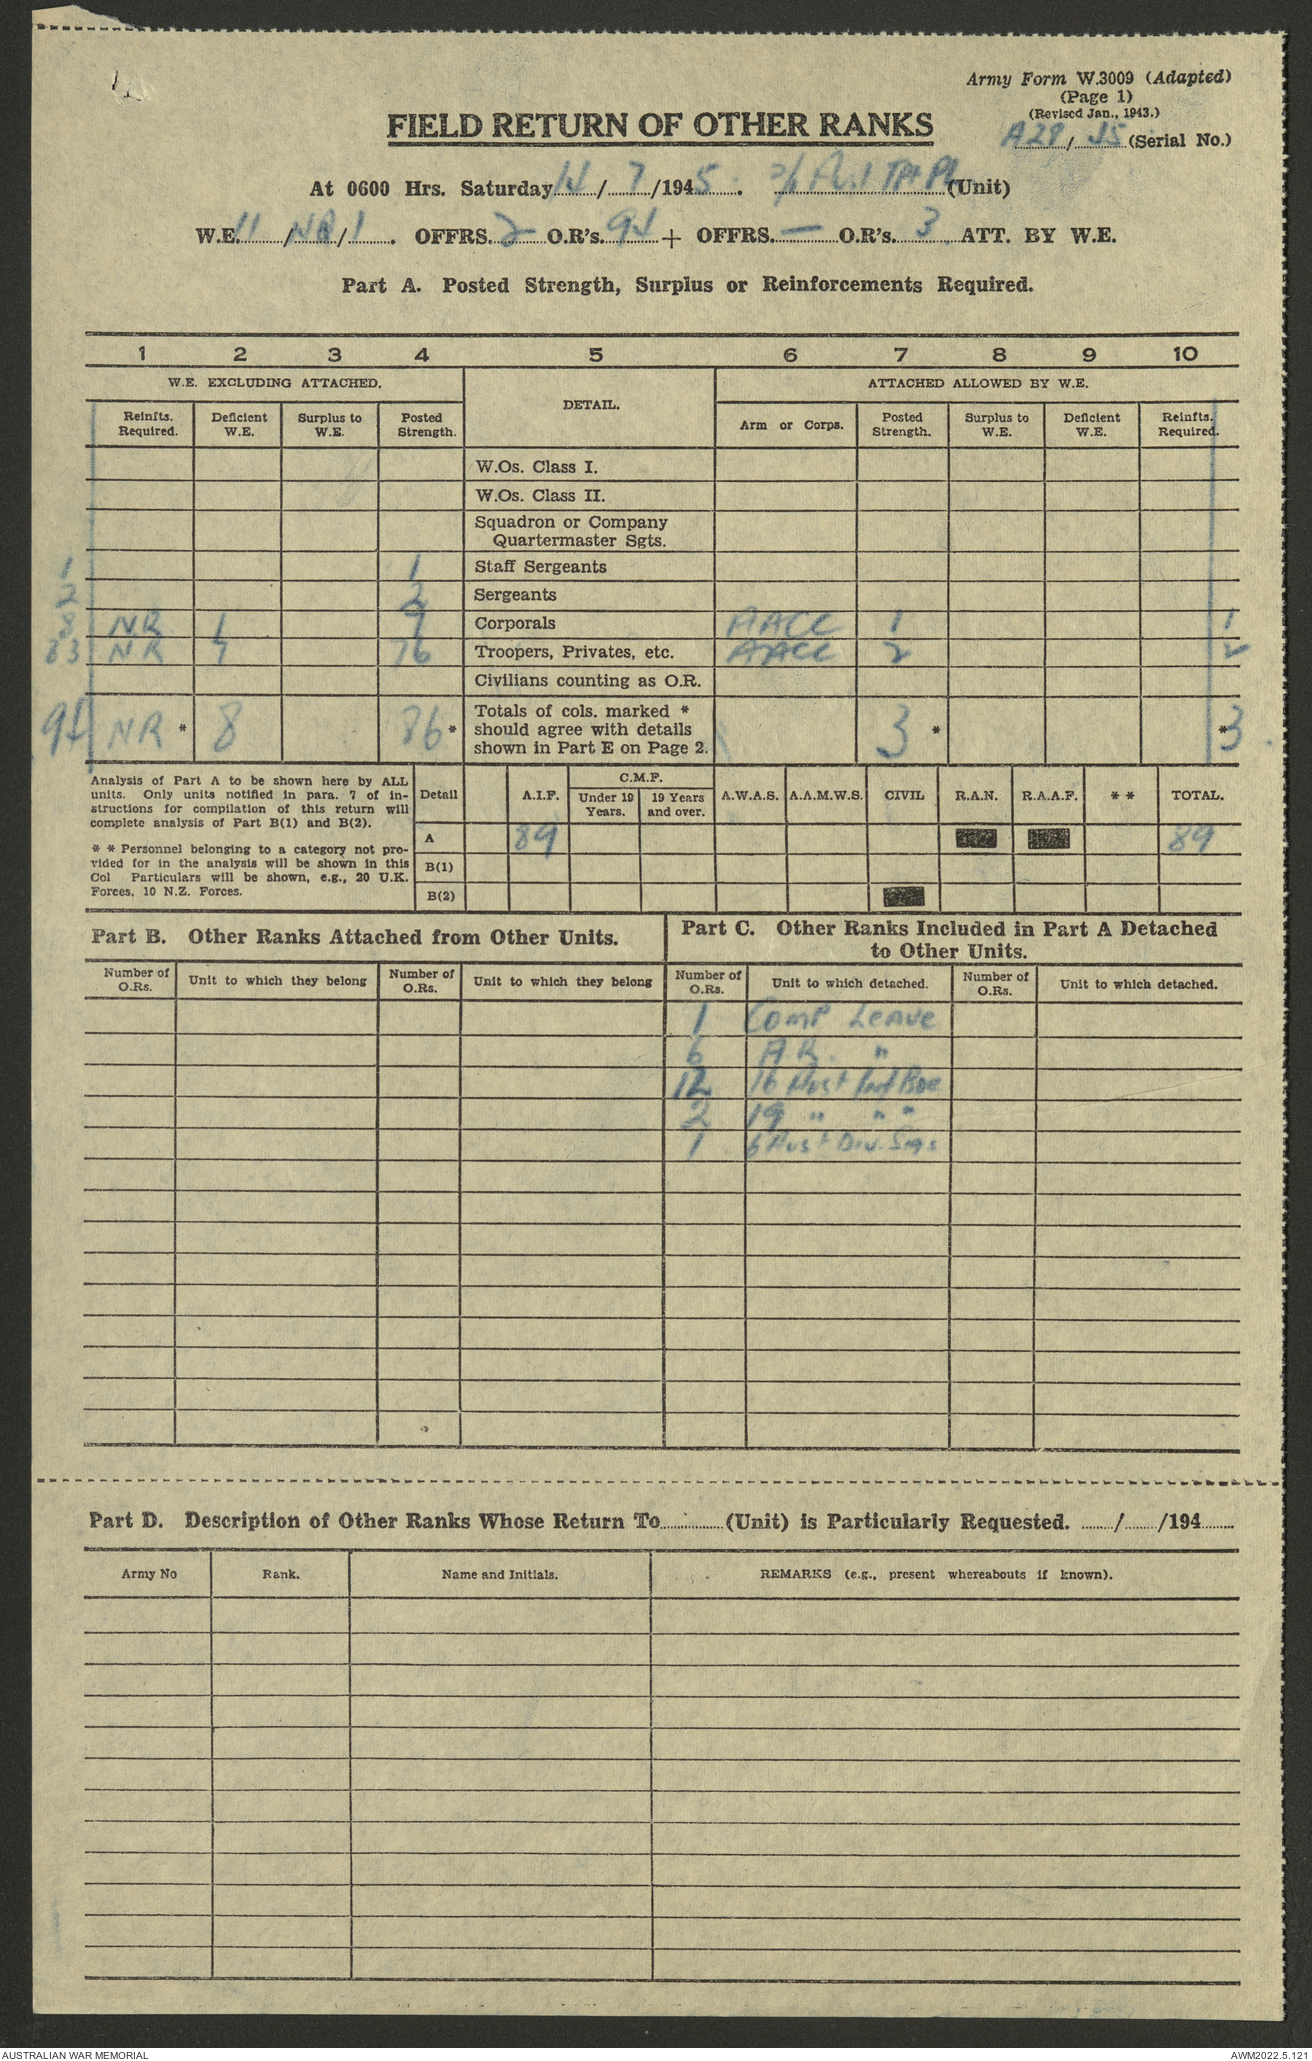 Army Form W.3009 (Adapted)
(Page 1)
(Revised Jan., 1943.)
FIELD RETURN OF OTHER RANKS
A28/45 (Serial No.)
At 0600 Hrs. Saturday 14/7/1945. Aust (Unit)
W.E. 11/NR/1. OFFRS. 2 O.R's. 94 + OFFRS. — O.R's. 3 ATT. BY W.E.
Part A. Posted Strength, Surplus or Reinforcements Required.
1 2 3 4 5 6 7 8 9 10
W.E. EXCLUDING ATTACHED. DETAIL. ATTACHED ALLOWED BY W.E.
Reinfts. Required. Deficient W.E. Surplus to W.E. Posted Strength. Arm or Corps. Posted Strength. Surplus to W.E. Deficient W.E. Reinfts. Required.
W.Os. Class I.
W.Os. Class II.
Squadron or Company
Quartermaster Sgts.
1 1 Staff Sergeants
2 2 Sergeants
8 NR 1 7 Corporals AACC 1 1
83 NR 7 76 Troopers, Privates, etc. AACC 2 2
Civilians counting as O.R.
94 NR * 8 86 * Totals of cols. marked * should agree with details shown in Part E on Page 2. 3 * * 3
Analysis of Part A to be shown here by ALL
units. Only units notified in para. 7 of in-
structions for compilation of this return will
complete analysis of Part B(1) and B(2).
* * Personnel belonging to a category not pro-
vided for in the analysis will be shown in this
Col Particulars will be shown, e.g., 20 U.K.
Forces, 10 N.Z. Forces.
Detail A.I.F. C.M.F. Under 19 Years. 19 Years and over. A.W.A.S. A.A.M.W.S. CIVIL R.A.N. R.A.A.F. * * TOTAL.
A 89 89
B(1)
B(2)
Part B. Other Ranks Attached from Other Units.
Part C. Other Ranks Included in Part A Detached
to Other Units.
Number of O.Rs. Unit to which they belong Number of O.Rs. Unit to which they belong Number of O.Rs. Unit to which detached. Number of O.Rs. Unit to which detached.
1 Comp Leave
6 A.R. "
12 16 Aust Inf Bde
2 19 " " "
1 6 Aust Div. Sigs
Part D. Description of Other Ranks Whose Return To (Unit) is Particularly Requested. / /194
Army No Rank. Name and Initials. REMARKS (e.g., present whereabouts if known).
AUSTRALIAN WAR MEMORIAL
AWM2022.5.121